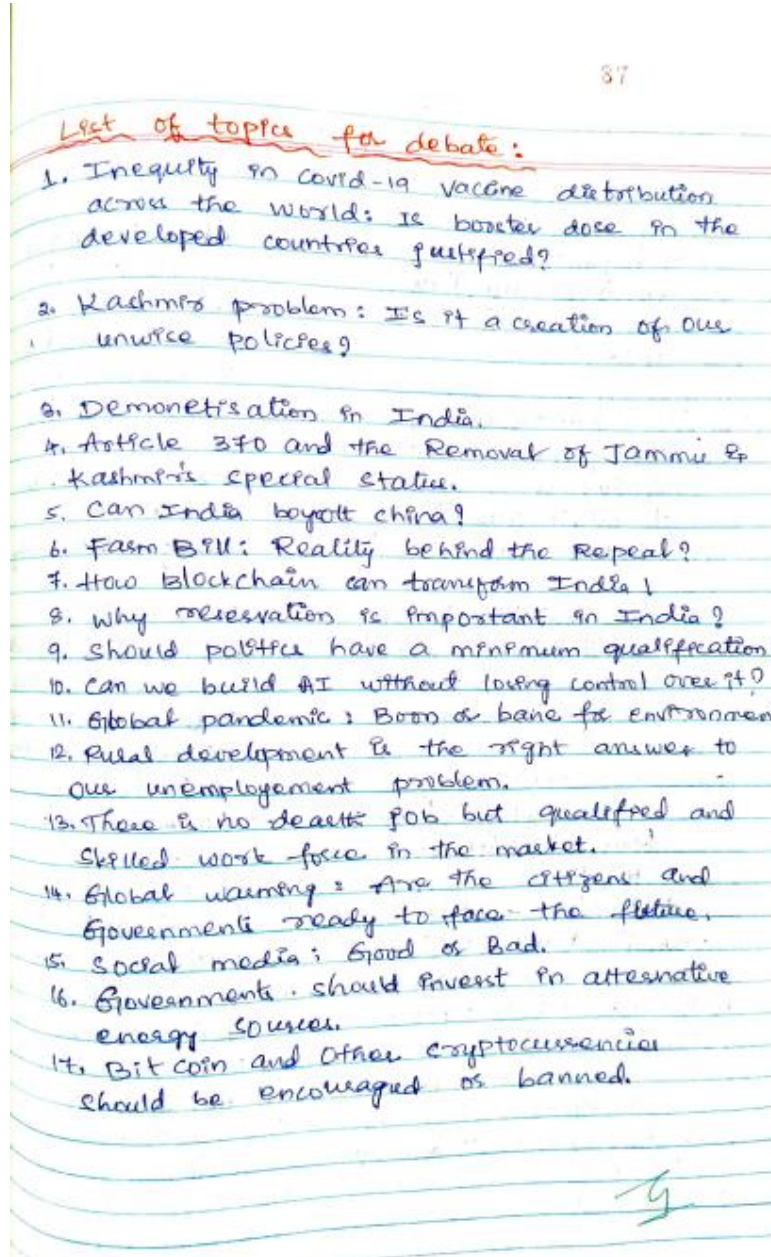 37
List of topics for debate:
1. Inequity in covid-19 vaccine distribution
across the world: Is booster dose in the
developed countries justified?
2. Kashmir problem: Is it a creation of our
unwise policies?
3. Demonetisation in India.
4. Article 370 and the Removal of Jammu &
Kashmir's special status.
5. Can India boycott china?
6. Farm Bill: Reality behind the Repeal?
7. How Blockchain can transform India!
8. Why reservation is important in India?
9. Should politics have a minimum qualification
10. Can we build AI without losing control over it?
11. Global pandemic: Boon or bane for environmen
12. Rural development is the right answer to
our unemployement problem.
13. There is no dearth job but qualified and
Skilled work force in the market.
14. Global warming: Are the citizens and
Governments ready to face the future.
15. Social media: Good or Bad.
16. Governments should invest in alternative
energy sources.
17. Bit coin and other cryptocurrencies
should be encouraged or banned.